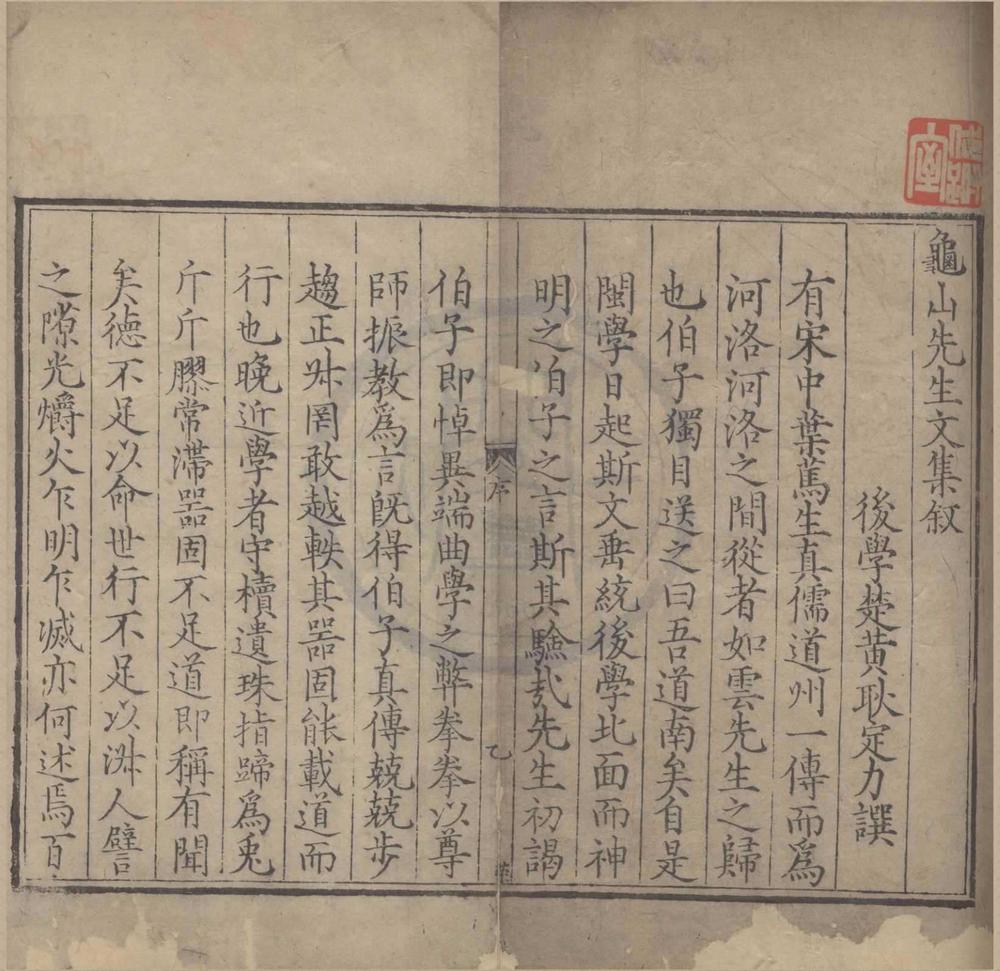 龜山先生文集叙
後學楚黃耿定力譔
有宋中葉篤生真儒道州一傳而爲
河洛河洛之間從者如雲先生之歸
也伯子獨目送之曰吾道南矣自是
閩學日起斯文埀統後學北面而神
明之伯子之言斯其驗㢤先生初謁
序
乙
伯子即悼異端曲學之弊拳拳以尊
師振教爲言旣得伯子真傳兢兢步
趨正脉罔敢越軼其器固能載道而
行也晚近學者守櫝遺珠指蹄爲兎
斤斤膠常滯器固不足道即稱有聞
矣德不足以命世行不足以淑人譬
之隙光爝火乍明乍滅亦何述焉百